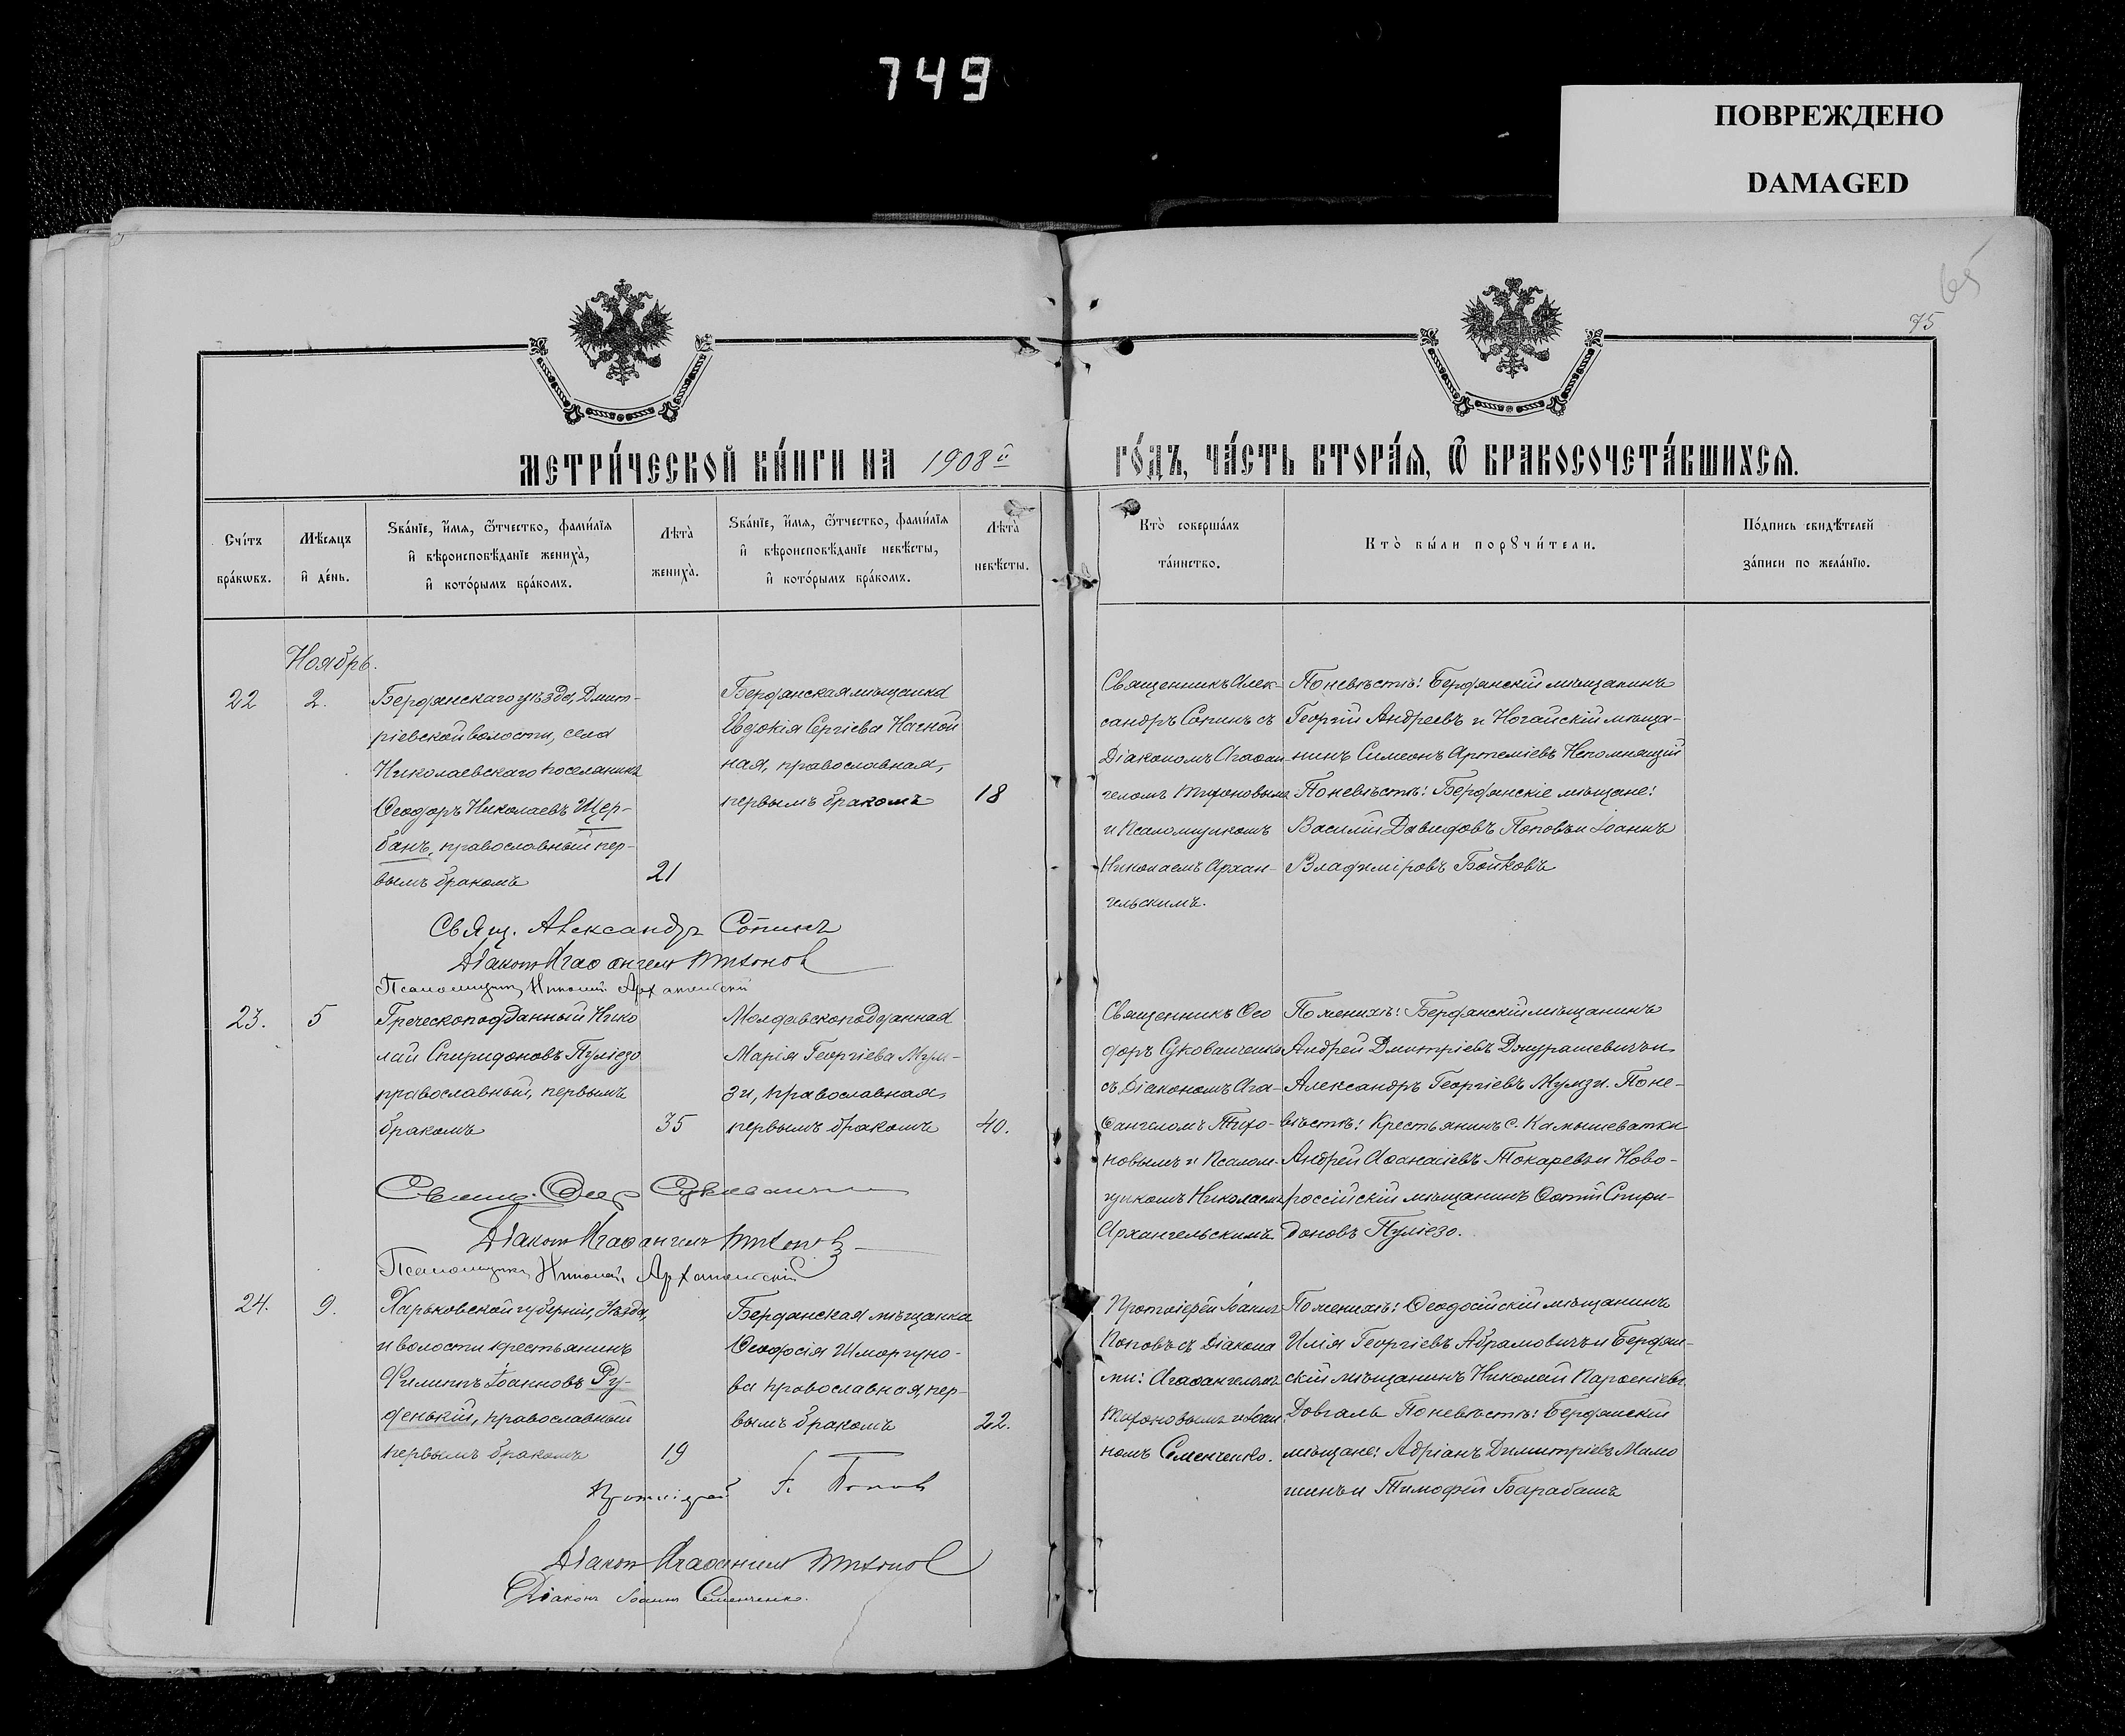 749
ПОВРЕЖДЕНО
DAMAGED
65
75
МЕТРИ́ЧЕСКОЙ КНИ́ГИ НА 1908й
ГО́ДЪ, ЧА́СТЬ ВТОРА́Я, Ѿ БРАКОСОЧЕТА́ВШИХСЯ.
Сче́тъ
бра́кѡвъ.
Мѣ́сяцъ
и҆ де́нь.
Ѕва́нїе, и҆́мя, ѻ҆́тчество, фамѝлїя
и҆ вѣроисповѣ́данїе жениха̀,
и҆ кото́рымъ бра́комъ.
Лѣ́та
жениха̀.
Ѕва́нїе, и҆́мя, ѻ҆́тчество, фамѝлїя
и҆ вѣроисповѣ́данїе невѣ́сты,
и҆ кото́рымъ бра́комъ.
Лѣ́та
невѣ́сты.
Кто̀ соверша́лъ
та́инство.
Кто̀ бы́ли порꙋчи́тели.
По́дпись свидѣ́телей
за́писи по жела́нїю.
Ноябрь.
22
2.
Бердянскаго уѣзда, Дмит-
ріевской волости, села
Николаевскаго поселянинъ
Ѳеодоръ Николаевъ Щер-
банъ, православный пер-
вымъ бракомъ
21
Бердянская мѣщанка
Евдокія Сергіева Начной
ная, православная,
первымъ бракомъ
18
Священникъ Алек-
сандръ Сопинъ съ
Діакономъ Агаѳан-
геломъ Тихоновымъ
и Псаломщикомъ
Николаемъ Архан-
гельскимъ.
По невѣстѣ: Бердянскій мѣщанинъ
Георгій Андреевъ и Ногайскій мѣща-
нинъ Симеонъ Артеміевъ Непомнящій
По невѣстѣ: Бердянскіе мѣщане:
Василій Давидовъ Поповъ и Іоаннъ
Владиміровъ Бойковъ
Свящ. Александръ Сопинъ
Діаконъ Агаѳангелъ Тихонов
Псаломщикъ Николай Архангельскій
23.
5
Греческоподданный Нико
лай Спиридоновъ Пуліезо
православный, первымъ
бракомъ
35
Молдавскоподданная
Марія Георгіева Мум-
зи, православная,
первымъ бракомъ
40.
Священникъ Ѳео
доръ Сукованченко
съ Діакономъ Ага-
ѳангеломъ Тихо-
новымъ и Псалом-
щикомъ Николаемъ
Архангельскимъ
По женихѣ: Бердянскій мѣщанинъ
Андрей Дмитріевъ Джурашевичъ и
Александръ Георгіевъ Мумзи. По не-
вѣстѣ: Крестьянинъ с. Камышеватки
Андрей Аѳанасіевъ Токаревъ и Ново-
россійскій мѣщанинъ Фотій Спири-
доновъ Пуліезо.
Діаконъ Агаѳангелъ Тихоновъ
Псаломщикъ Николай Архангельскій
24.
9.
Харьковской губерніи, уѣзда,
и волости крестьянинъ
Филиппъ Іоанновъ Ру-
денькій, православный
первымъ бракомъ
19
Бердянская мѣщанка
Ѳеодосія Шморгуно-
ва православная, пер-
вымъ бракомъ
22.
Протоіерей Іоаннъ
Поповъ съ Діакона
ми: Агаѳангеломъ
Тихоновымъ и Іоан
номъ Семенченко.
По женихѣ: Ѳеодосійскій мѣщанинъ
Илія Георгіевъ Абрамовичъ и Бердян-
скій мѣщанинъ Николай Парѳеніевъ
Довгаль По невѣстѣ: Бердянскіи
мѣщане: Адріанъ Димитріевъ Мамо
шинъ и Тимофей Барабашъ
Протоіерей І. Попов
Діаконъ Агаѳангелъ Тихонов
Діаконъ Іоаннъ Семенченко.